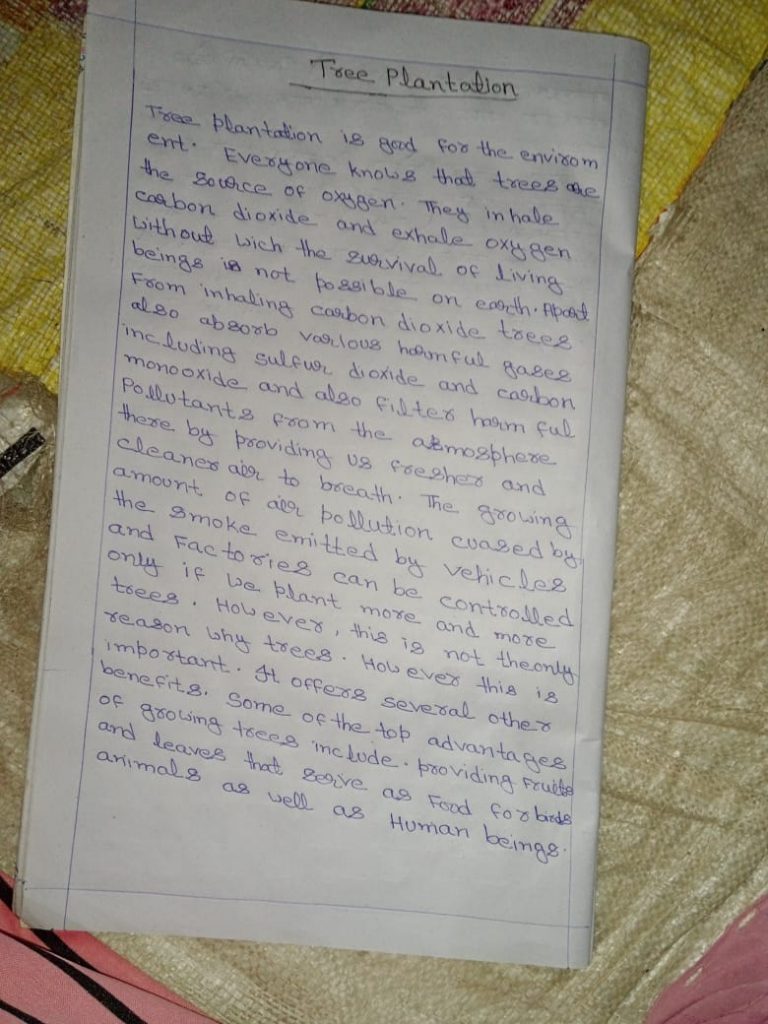 Tree Plantation
Tree plantation is good for the environm
ent. Everyone knows that trees are
the source of oxygen. They inhale
carbon dioxide and exhale oxygen
without wich the survival of living
beings is not possible on earth. Apart
from inhaling carbon dioxide trees
also absorb various harmful gases
including sulfur dioxide and carbon
monooxide and also filter harm ful
Pollutants from the atmosphere
there by providing us fresher and
cleaner air to breath. The growing
amount of air pollution cuased by
the smoke emitted by vehicles
and Factories can be controlled
only if we plant more and more
trees. However, this is not the only
reason why trees. However this is
important. It offers several other
benefits. Some of the top advantages
of growing trees include. providing fruits
and leaves that serve as Food for birds
animals as well as Human beings.